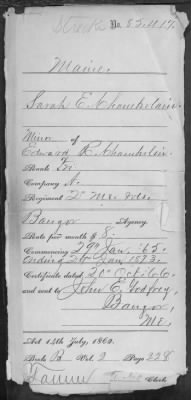 No. 83,417.
Maine.
Sarah E. Chamberlain.
Minor of
Edward R. Chamberlain
Rank
Company A.
Regiment 2d Me. Vols.
Bangor Agency.
Rate per month $ 8.
Commencing 29th Jan. '65.
Ending 26 Jan 1873.
Certificate dated 20" Oct. '66.
and sent to John E. Godfrey,
Bangor,
Me.
Act 14th July, 1862.
Book B Vol. 2 Page 228
Clerk.